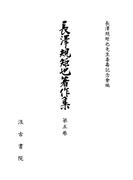 長澤規矩也先生喜壽記念會編
長澤規矩也著作集
第五卷
汲古書院